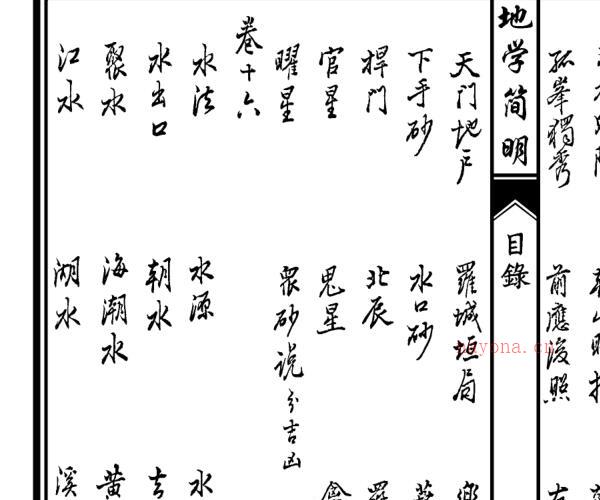 孤峯獨秀 前應後照
地学简明
目錄
天門地戶 羅城垣局
下手砂 水口砂
捍門 北辰
官星 鬼星
曜星 眾砂说 分吉凶
卷十六
水法 水源 水
水出口 朝水 吉
聚水 海潮水 黄
江水 湖水 溪